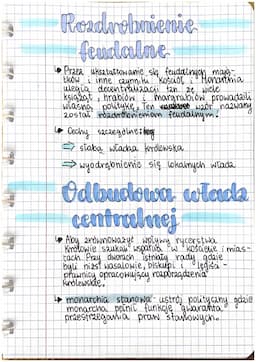 Rozdrobnienie
feudalne
↳ Przez ukształtowanie się feudalnych mająt-
ków i inne czynniki Kościół i Monarchia
ulegią decentralizacji ten że wiele
książąt, hrabiów i margrabiów prowadzili
własną politykę. Ten wzór nazwany
został rozdrobnieniem feudalnym.
↳ Cechy szczególne:
⇒ słaba władza królewska
⇒ wyodrębnienie się lokalnych władz
Odbudowa władz
centralnej
↳ Aby zrównoważyć wpływy rycerstwa
królowie szukali wsparcia w kościele i mias-
tach. Przy dworach istniały rady gdzie
byli niżsi wasalowie, biskupi i legiści-
prawnicy opracowujący rozporządzenia
królewskie,
↳ monarchia stanowa- ustrój polityczny gdzie
monarcha pełnił funkcję gwaranta
przestrzegania praw stanowych.